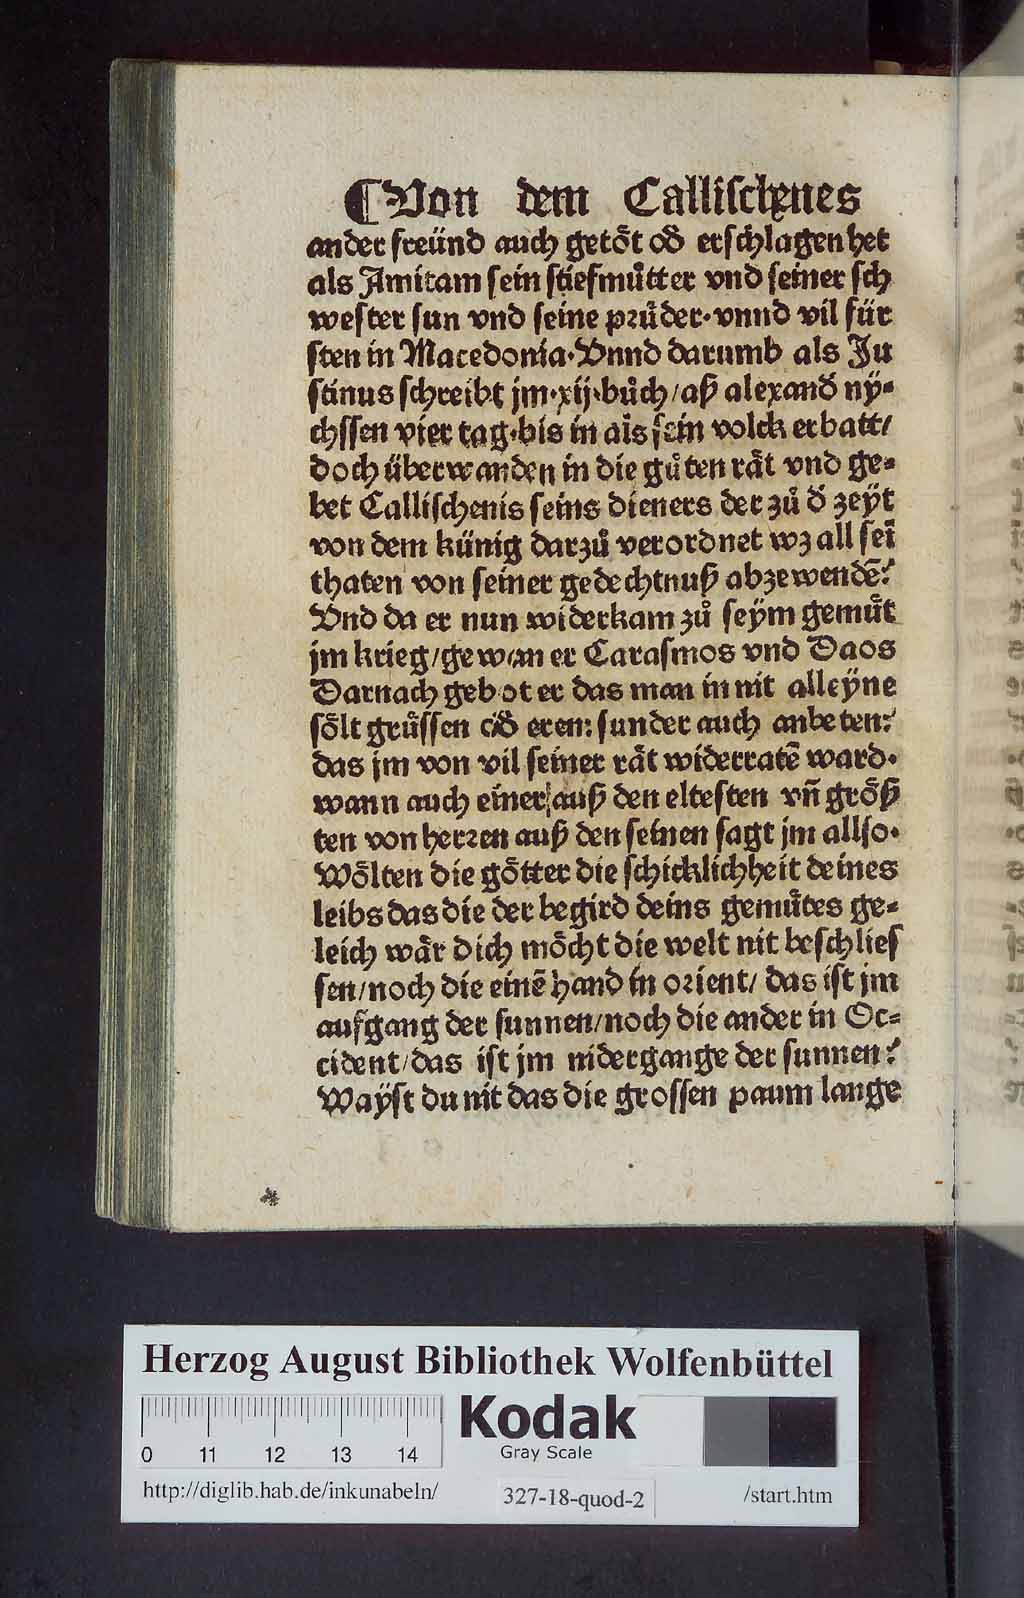 ¶Von dem Callischenes
ander freünd auch getoͤt oð erschlagen het
als Amitam sein stiefmuͦtter vnd seiner sch
wester sun vnd seine pꝛuͤder·vnnd vil für
sten in Macedonia·Vnnd darumb als Ju
stinus schreibt jm·xij·buͦch/aß alexand̃ ny̋⸗
chssen vier tag·bis in als sein volck erbatt/
doch überwanden in die guͦten raͤt vnd ge⸗
bet Callischenis seins dieners der zuͦ ð zeẏt
von dem künig darzuͦ verordnet wz all sei͂
thaten von seiner gedechtnuß abzewende͂:
Vnd da er nun widerkam zuͦ seẏm gemuͤt
jm krieg/gewan er Carasmos vnd Daos
Darnach gebot er das man in nit alleẏne
soͤlt gruͤssen oð eren: sunder auch anbeten:
das jm von vil seiner raͤt widerrate͂ ward·
wann auch einer auß den eltesten vn͂ groͤß
ten von herꝛen auß den seinen sagt jm allso·
Woͤlten die goͤtter die schicklichheit deines
leibs das die der begird deins gemuͤtes ge⸗
leich waͤr dich moͤcht die welt nit beschlies
sen/noch die eine͂ hand in oꝛient/ das ist jm
aufgang der sunnen/noch die ander in Oc⸗
cident/das ist jm nidergange der sunnen:
Waẏst du nit das die grossen paum lange
Herzog August Bibliothek Wolfenbüttel
0 11 12 13 14
Kodak
Gray Scale
http://diglib.hab.de/inkunabeln/ 327-18-quod-2 /start.htm